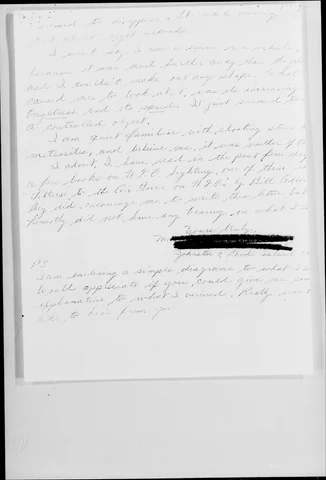 seemed to disappear. It
but about eight seconds.
I won't say I saw a saucer or a vehicle,
because it was much further away than the plane
and I couldn't make out any shape. What
caused me to look at it, was the increasing
brightness and its speed. It just seemed like
a controlled object.
I am quite familiar with shooting stars &
meteorites, and believe me, it was neither of
I admit, I have read in the past few
a few books on U.F.O. sighting, one of them
"Letters to the Air Force on U.F.O.'s" by Bill Adler.
They did encourage me to write this letter but
honestly did not have any bearing on what I
Yours truly,
M
P.S.
I am enclosing a simple diagram to what I
Would appreciate if you could give me some
explanation to what I viewed. Really would
like to hear from you.